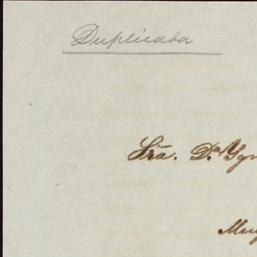 Duplicada
Sra. Da. Ygn
Muy